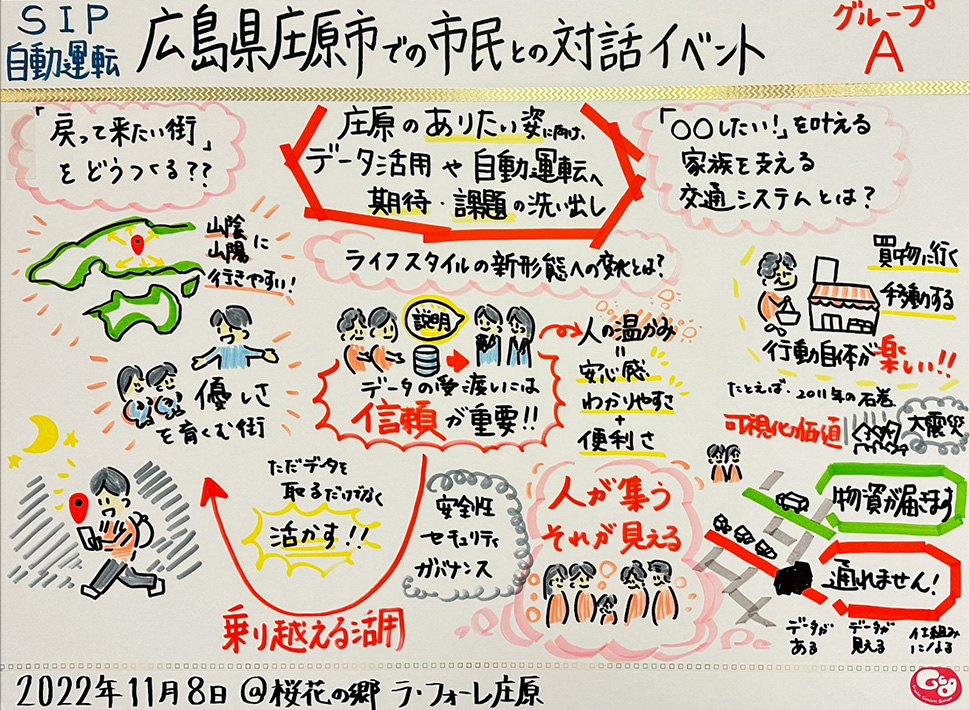 SIP
自動運転
広島県庄原市での市民との対話イベント
グループ
A
「戻って来たい街」
をどうつくる??
庄原のありたい姿に向け、
データ活用や自動運転へ
期待・課題の洗い出し
「○○したい!」を叶える
家族を支える
交通システムとは?
ライフスタイルの新形態への変化とは?
山陰
山陽に
行きやすい!
優しさ
を育くむ街
説明
データの受渡しには
信頼が重要!!
人の温かみ
=
安心感
わかりやすさ
+
便利さ
買物に行く
移動する
行動自体が楽しい!!
たとえば・2011年の石巻
可視化の価値
大震災
ただデータを
取るだけでなく
活かす!!
乗り越える活用
安全性
セキュリティ
ガバナンス
人が集う
それが見える
物資が届きます
通れません!
データが
ある
データが
見える
仕組み
になる
2022年11月8日 @桜花の郷 ラ・フォーレ庄原